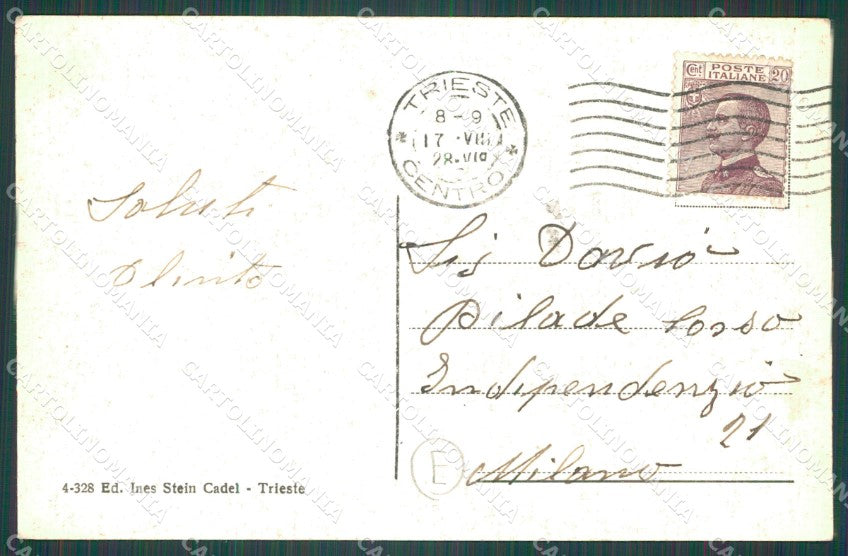 TRIESTE
8-9
17 VII
28.VI
CENTRO
Cent POSTE ITALIANE 20
Saluti
Olinto
Sig Davió
Pilade Corso
Indipendenzia
21
E Milano
4-328 Ed. Ines Stein Cadel - Trieste
CARTOLINOMANIA